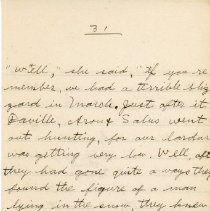 31
"Well," she said, "If you're
member, we had a terrible bliz
zard in March. Just after it
Daville, Arout Salus went
out hunting, for our lardar
was getting very low. Well, after
they had gone quite a ways they
found the figure of a man
lying in the snow, they knew